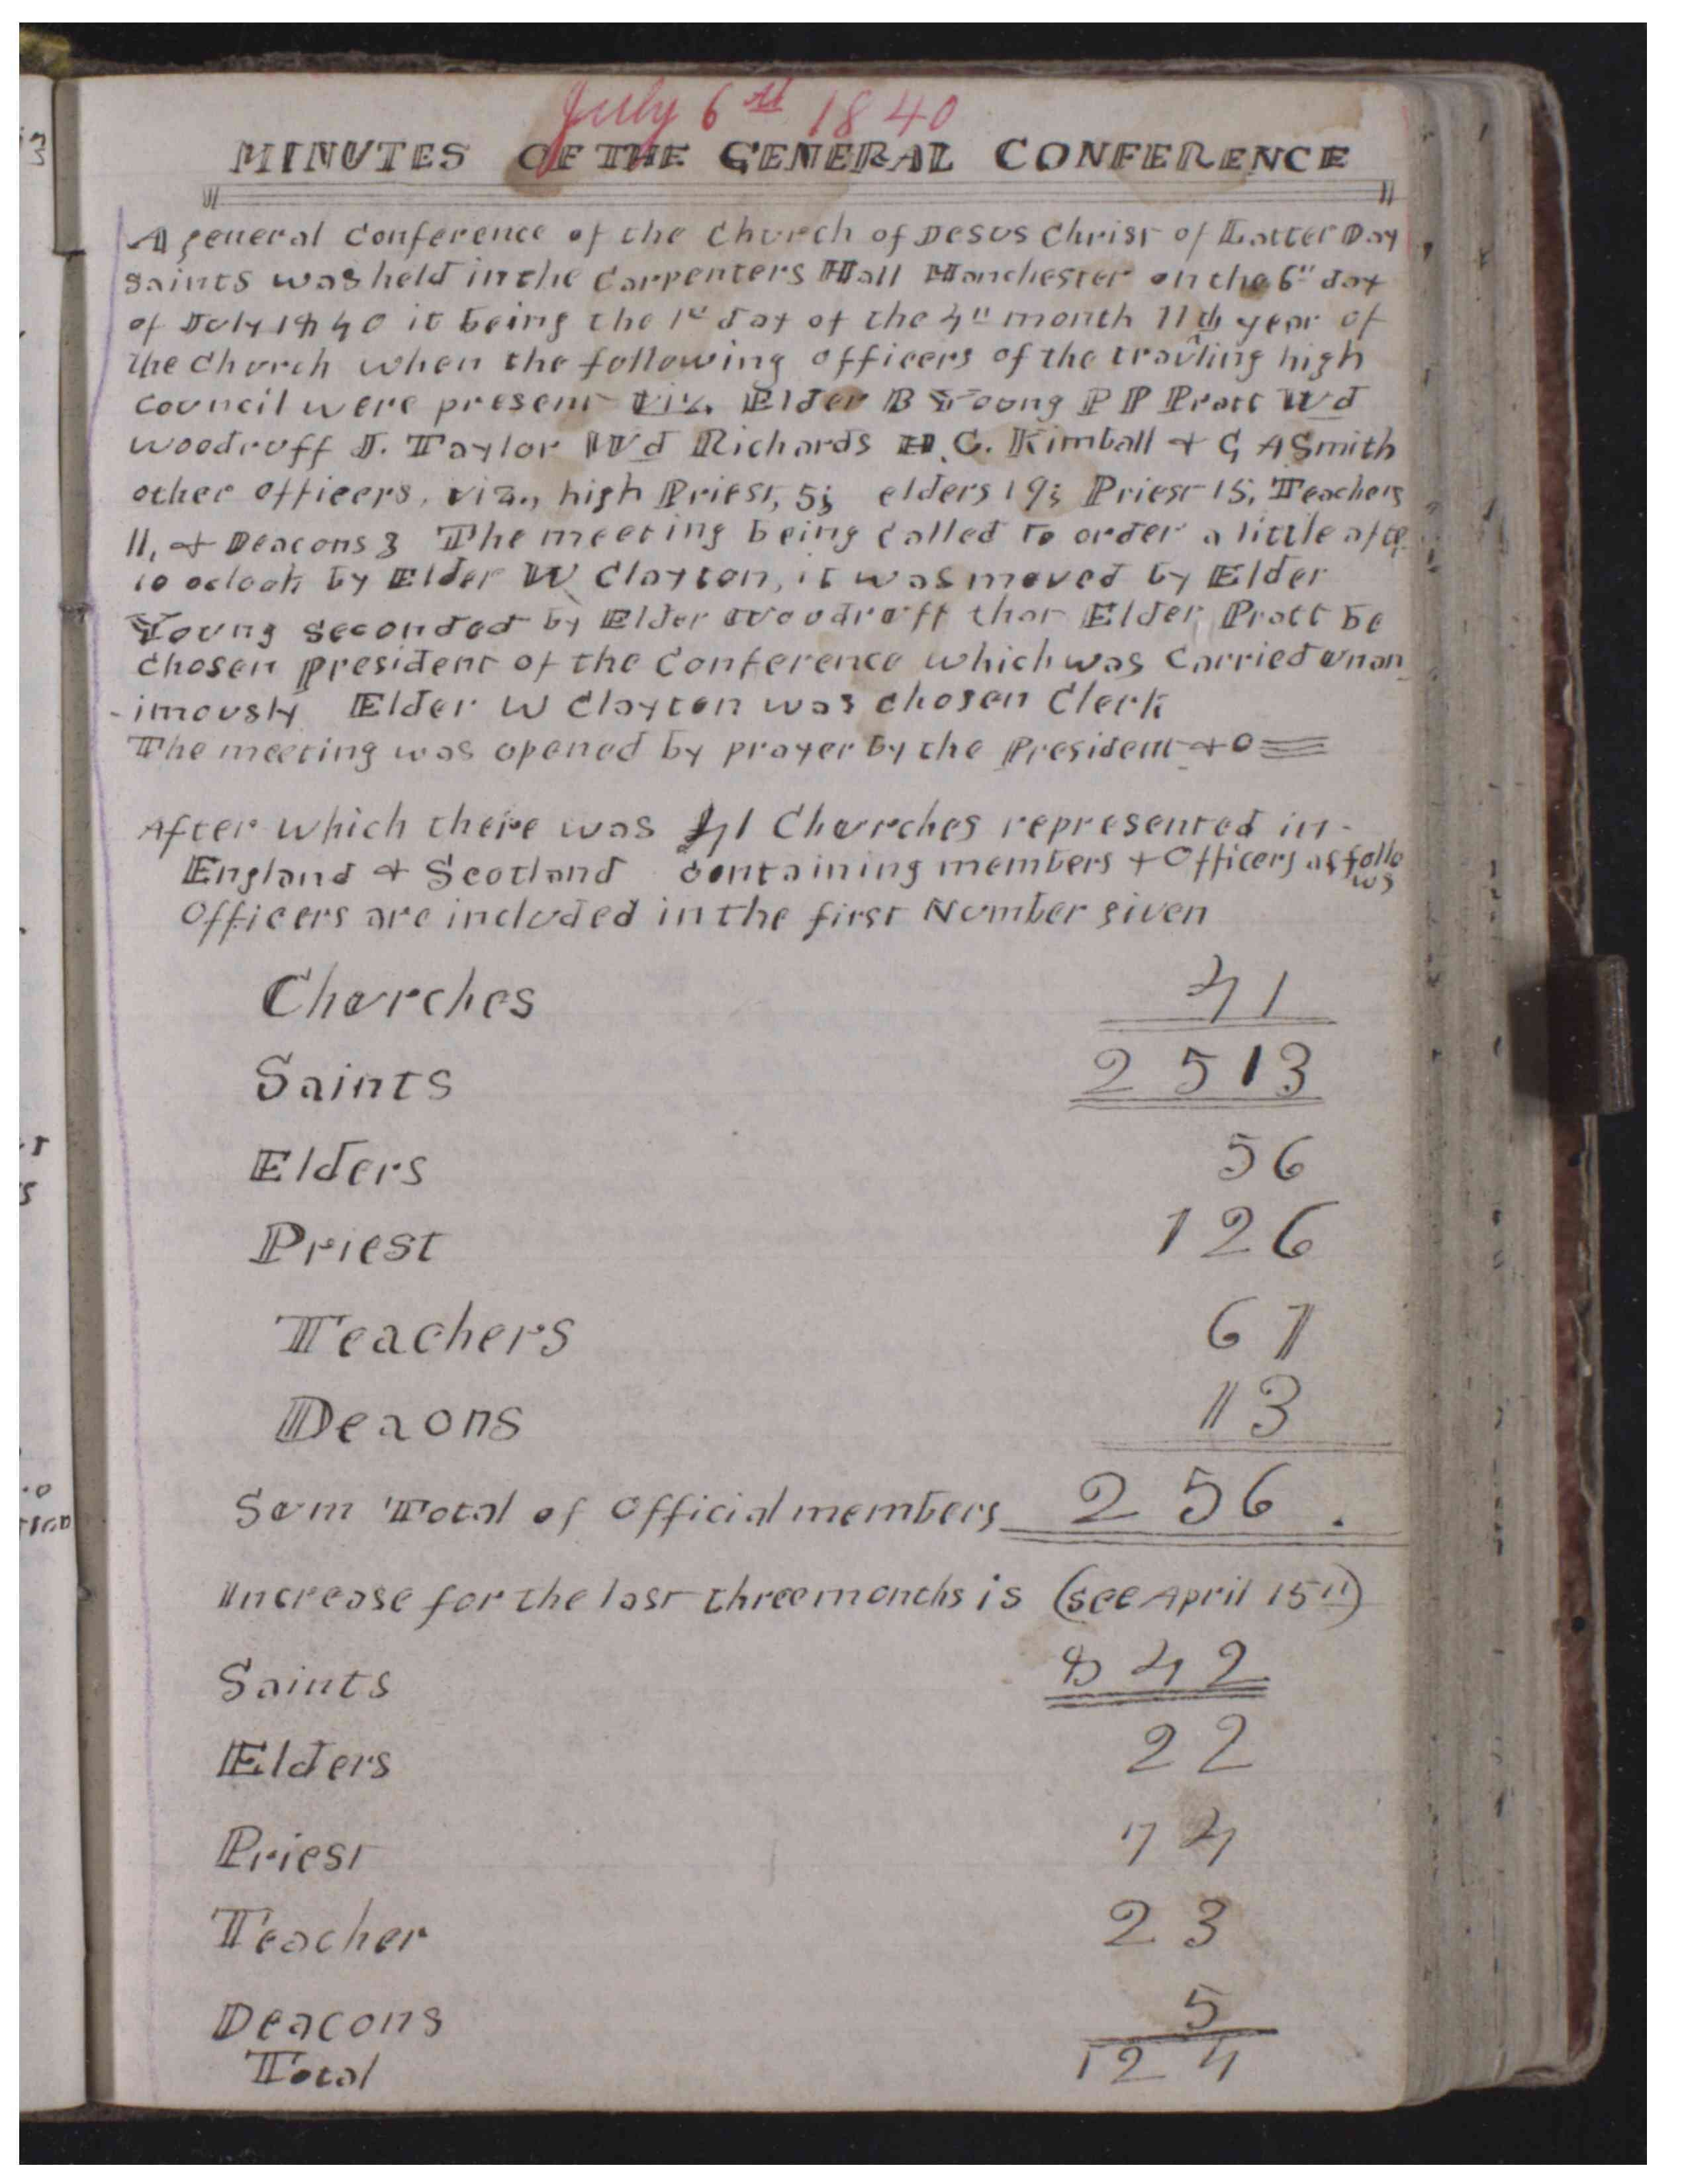 July 6th 1840
MINUTES OF THE GENERAL CONFERENCE
A general Conference of the Church of Jesus Christ of Latter Day
Saints was held in the Carpenters Hall Manchester on the 6" day
of July 1840 it being the 1st day of the 4" month 11th year of
the Church when the following officers of the travling high
Council were present Viz. Elder B Young P P Pratt Wd
Woodruff J. Taylor Wd Richards H. C. Kimball & G A Smith
other officers, viz., high Priest, 5; elders 19; Priest 15, Teachers
11, & Deacons 3 The meeting being Called to order a little afte
10 oclock by Elder W Clayton, it was moved by Elder
Young seconded by Elder Woodruff that Elder Pratt be
Chosen president of the Conference which was Carried unan
-imously Elder W Clayton was chosen Clerk
The meeting was opened by prayer by the President &c
After which there was 41 Churches represented in-
England & Scotland Containing members & Officers as follo
ws
Officers are included in the first Number given
Churches 41
Saints 2513
Elders 56
Priest 126
Teachers 61
Deaons 13
Sum Total of Official members 256.
Increase for the last three months is (see April 15")
Saints 842
Elders 22
Priest 74
Teacher 23
Deacons 5
Total 124
3